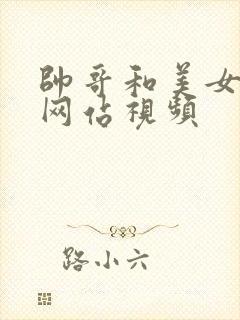 帥哥和美女
网佔視頻
路小六